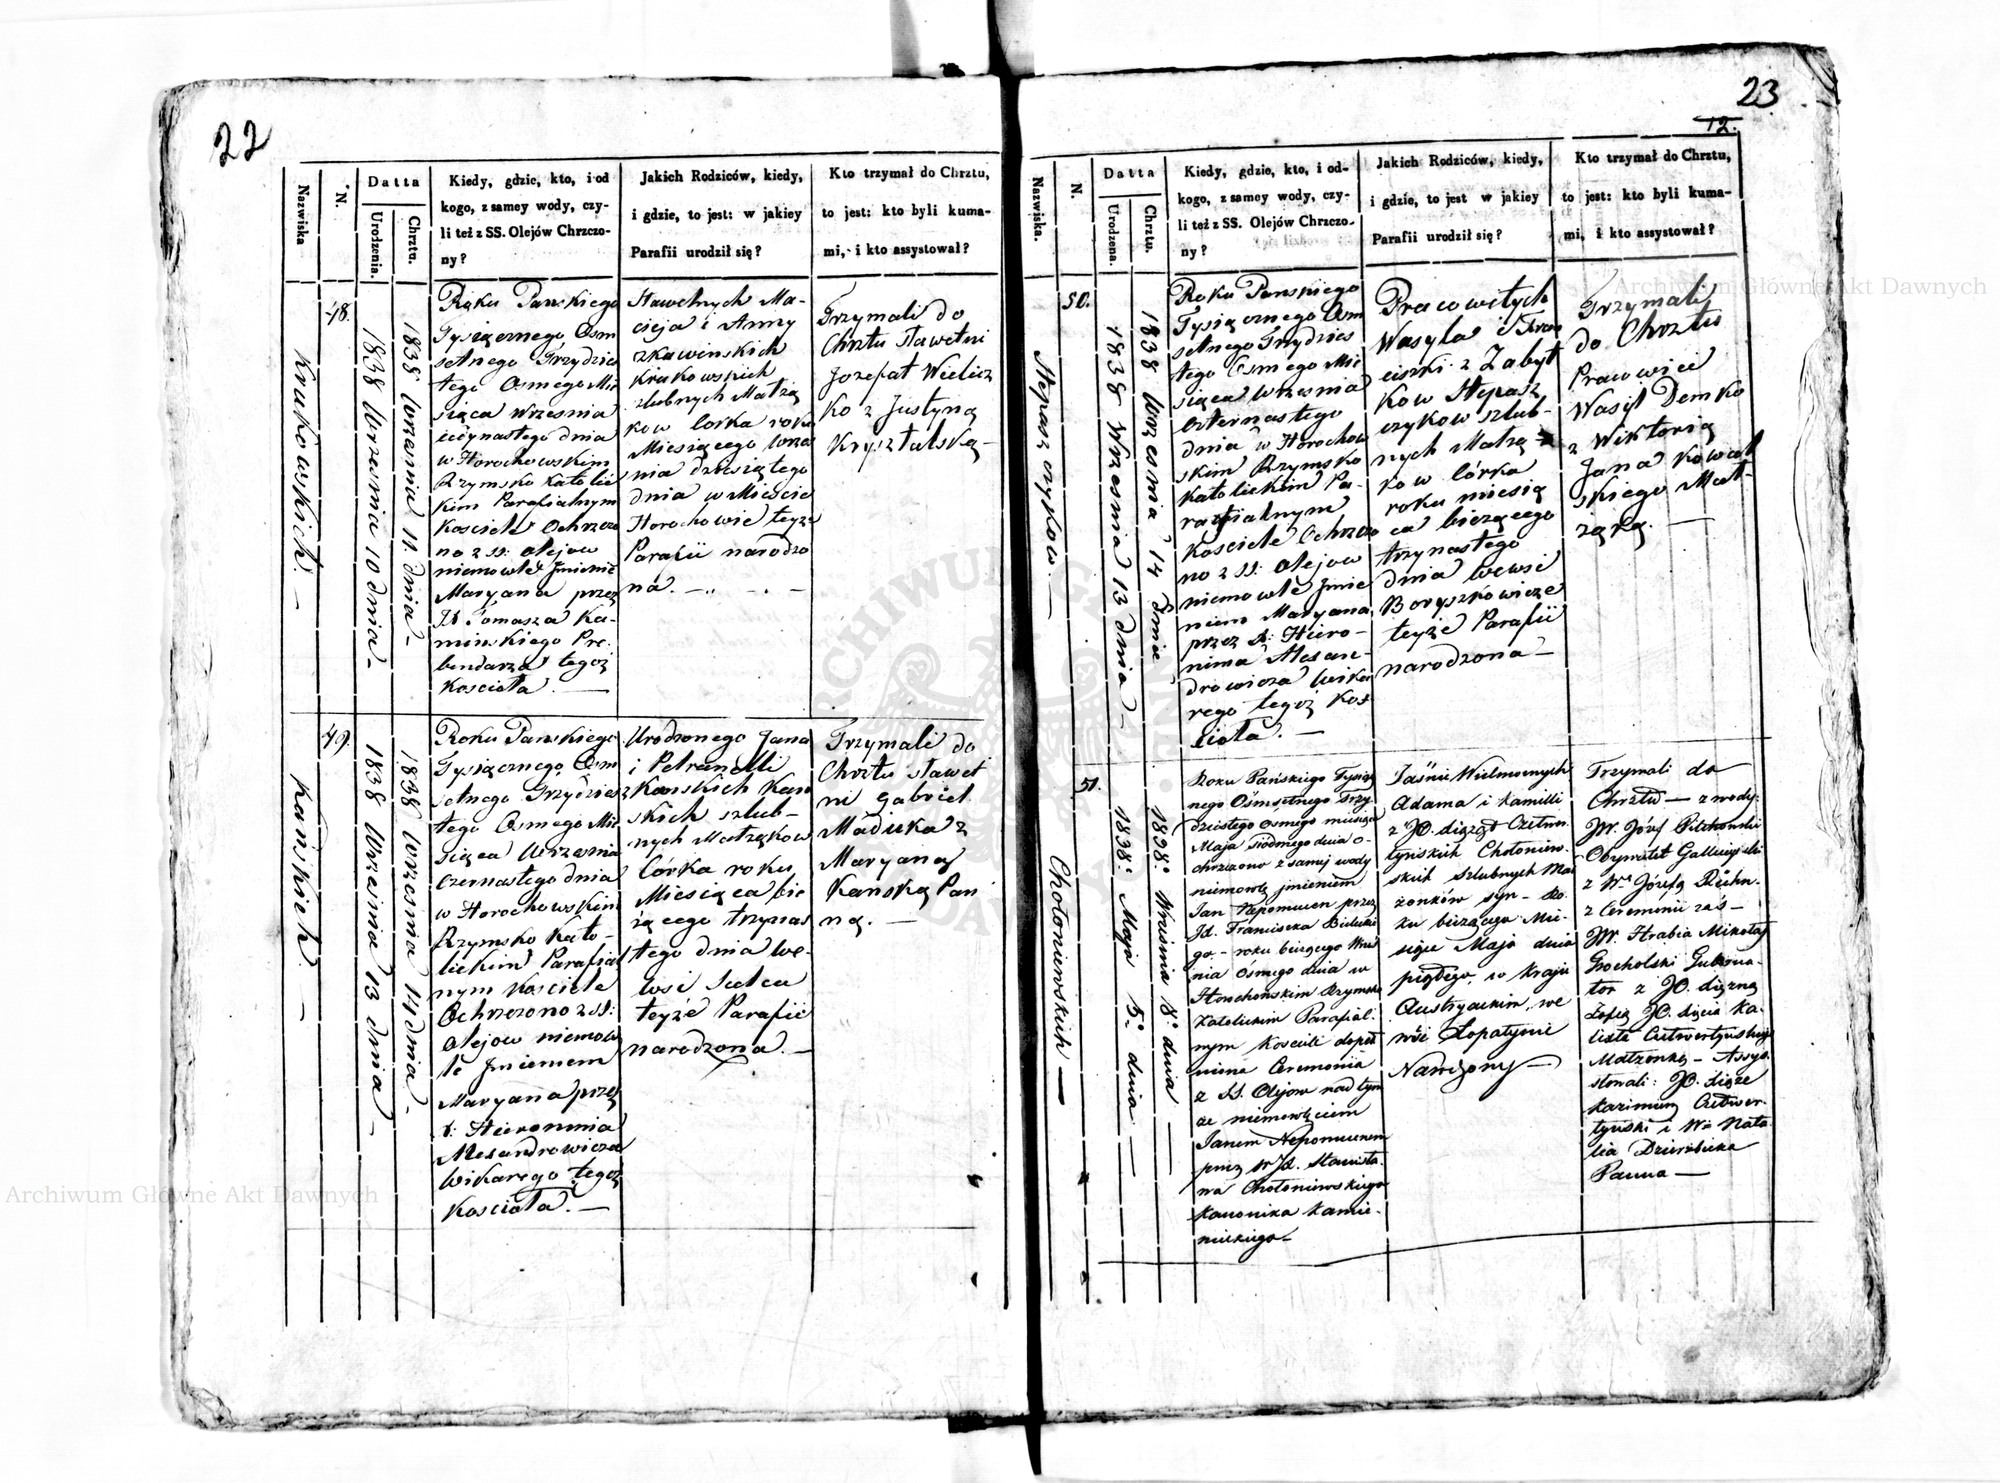 22
Nazwiska
N.
Datta
Urodzenia.
Chrztu.
Kiedy, gdzie, kto, i od
kogo, z samey wody, czy-
li też z SS. Olejów Chrzczo-
ny?
Jakich Rodziców, kiedy,
i gdzie, to jest: w jakiey
Parafii urodził się?
Kto trzymał do Chrztu,
to jest: kto byli kuma-
mi, i kto assystował?
Krukowskich. —
48.
1838 Września 10 dnia -
1838 Września 11. dnia -
Roku Pańskiego
Tysiącznego Osm
setnego Trzydzies
tego Osmego Mie
siąca Września
iedynastego dnia
w Horochowskim
Rzymsko Katolic
kim Parafialnym
Kościele Ochrzczo
no z SS: Olejow
niemowle Jmienie
Maryana przez
Tomasza Ka-
minskiego Pre-
bendarza tegoż
Kosciola. —
Sławetnych Ma-
cieja i Anny
Krukowskich
slubnych Małżą
kow Corka roku
Miesiącego Wrze
snia dziesiątego
dnia w Miescie
Horochowie teyże
Parafii narodzo
na. —
Trzymali do
Chrztu sławetni
Jozefat Wielicz
ko z Justyną
Krysztalską —
Kańskich. —
49.
1838 Września 13 dnia -
1838 Września 14 dnia -
Roku Pańskiego
Tysiącznego Osm
setnego Trzydzies
tego Osmego Mie
siąca Września
czernastego dnia
w Horochowskim
Rzymsko Kato-
lickim Parafial
nym Kosciele
Ochrzczono z SS:
Olejow niemow
le Jmieniem
Maryana przez
X: Hieronima
Alesandrowicza
Wikarego tegoż
Kosciola. —
Urodzonego Jana
i Petranelli
Kańskich Kań
skich szlub-
nych Małżąkow
Córka roku,
Miesiąca bie
żącego trzynas
tego dnia we-
wsi
teyże Parafii
narodzona. —
Trzymali do
Chrztu sławet
ni Gabriel
Maduka z
Maryaną
Kańską Pan
ną. —
23
12.
Nazwiska.
N.
Datta
Urodzena.
Chrztu.
Kiedy, gdzie, kto, i od-
kogo, z samey wody, czy-
li też z SS. Olejów Chrzczo-
ny?
Jakich Rodziców, kiedy,
i gdzie, to jest w jakiey
Parafii urodził się?
Kto trzymał do Chrztu,
to jest: kto byli kuma-
mi, i kto assystował?
Stepaszczykow. —
50.
1838 Września 13 dnia —
1838 Września 14 dnie
Roku Panskiego
Tysiącznego Osm
setnego Trydzies
tego Osmego Mie
siąca Września
czternastego
dnia w Horochow
skim Rzymsko
Katolickim Pa-
rafialnym
Kosciele Ochrzczo
no z SS: Olejow
niemowle Jmie
niem Maryana
przez X: Hiero-
nima Alesan-
drowicza Wika
rego tegoż Kos-
ciola. —
Pracowitych
Wasyla i Fran
ciszki z Zabyt
kow Stepasz
czykow szlub-
nych Małżą
kow Córka
roku miesią
ca bieżącego
trzynastego
dnia we wsi
Boryszkowicze
teyże Parafii
narodzona —
Trzymali
do Chrztu
Pracowici
Wasyl Demko
z Wiktorią
Jana Kowal
skiego Mał-
żąką. —
Chołoniewskich —
51.
1838: Maja 5° dnia —
1838: Września 8° dnia —
Roku Pańskiego Tysią
nego Ośmsetnego Trzy
dziestego osmego miesiąca
Maja siódmego dnia o-
chrzczono z samej wody
niemowlę jmieniem
Jan Nepomucen przez
Jd. Franciszka
go. - roku bieżącego Wrze
śnia Osmego dnia w
Horochowskim Rzymsko
Katolickim Parafial.
nym Kościele dopeł
niona Ceremonia
z SS. Olejow nad tym
że niemowlęciem
Janem Nepomucenem
przez W Jd. Stanisła.
wa Chołoniewskiego
Kanonika Kamie-
nieckiego —
Jaśnie Wielmożnych
Adama i Kamilli
z JO. Xiążąt Czetwer
tyńskich Chołoniew-
skich szlubnych Mał
żonków syn - Ro.
ku bieżącego Mie-
siąca Maja dnia
piątego, w kraju
Austryackim, we
wsi Łopatynie
Narodzony —
Trzymali do
Chrztu — z wody.
JW. Józef
Obywatel Gallicyiski
z Wną Józefą
z Ceremonii zaś —
JW. Hrabia Mikołay
Grocholski Guberna-
tor z JO. Xiężną
Zofią JO. Xięcia Ka-
lixta Czetwertyńskiego
Małżonką — Assys-
towali: JO. Xiąże
Kazimierz Czetwer-
tyński i Wna Nata-
lia Dzierzbicka
Panna —
Archiwum Główne Akt Dawnych
Archiwum Główne Akt Dawnych